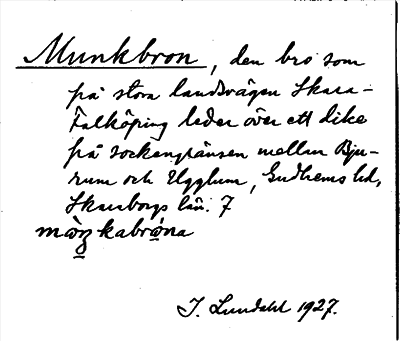 Munkbron, den bro som
på stora landsvägen Skara-
Falköping leder över ett dike
på sockengränsen mellan Bju-
rum och Ugglum, Gudhems hd,
Skaraborgs län. 7
kabrǫna
J. Lundahl 1927.